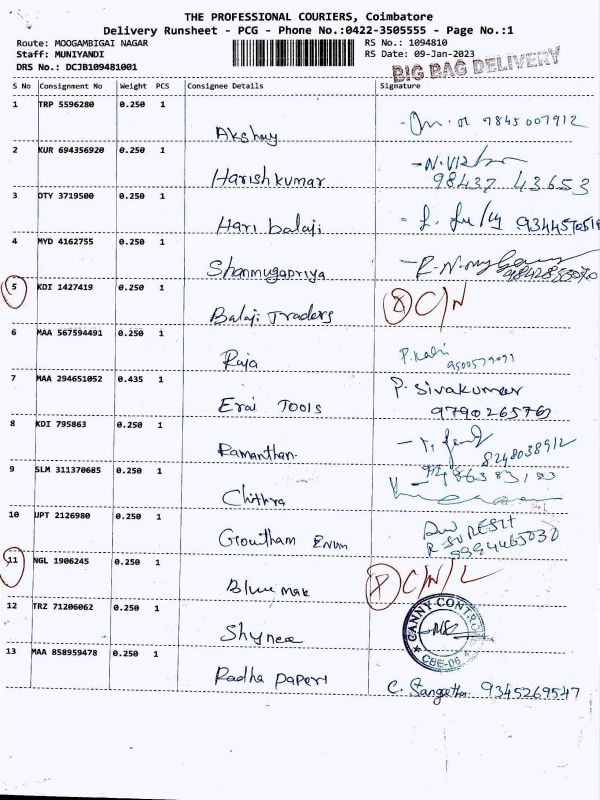 THE PROFESSIONAL COURIERS, Coimbatore
Delivery Runsheet - PCG - Phone No.:0422-3505555 - Page No.:1
Route: MOOGAMBIGAI NAGAR RS No.: 1094810
Staff: MUNIYANDI RS Date: 09-Jan-2023
DRS No.: DCJB109481001 BIG BAG DELIVERY
S No Consignment No Weight PCS Consignee Details Signature
1 TRP 5596280 0.250 1
Akshay 7845007912
2 KUR 694356920 0.250 1
Harish kumar 98437 43653
3 DTY 3719500 0.250 1
Hari balaji
4 MYD 4162755 0.250 1
Shanmugapriya
5 KDI 1427419 0.250 1 C/N
Balaji Traders
6 MAA 567594491 0.250 1
Raja
7 MAA 294651052 0.435 1 P. Sivakumar
Erai TOOLS 9790265761
8 KDI 795863 0.250 1
Ramanthan 8248038912
9 SLM 311370685 0.250 1
Chithra
10 UPT 2126980 0.250 1 R SURESH
Groutham
11 NGL 1906245 0.250 1
12 TRZ 71206062 0.250 1 CANNY CONTRO
CBE-06
13 MAA 858959478 0.250 1
Radha papers C. Sangeetha 9345269547